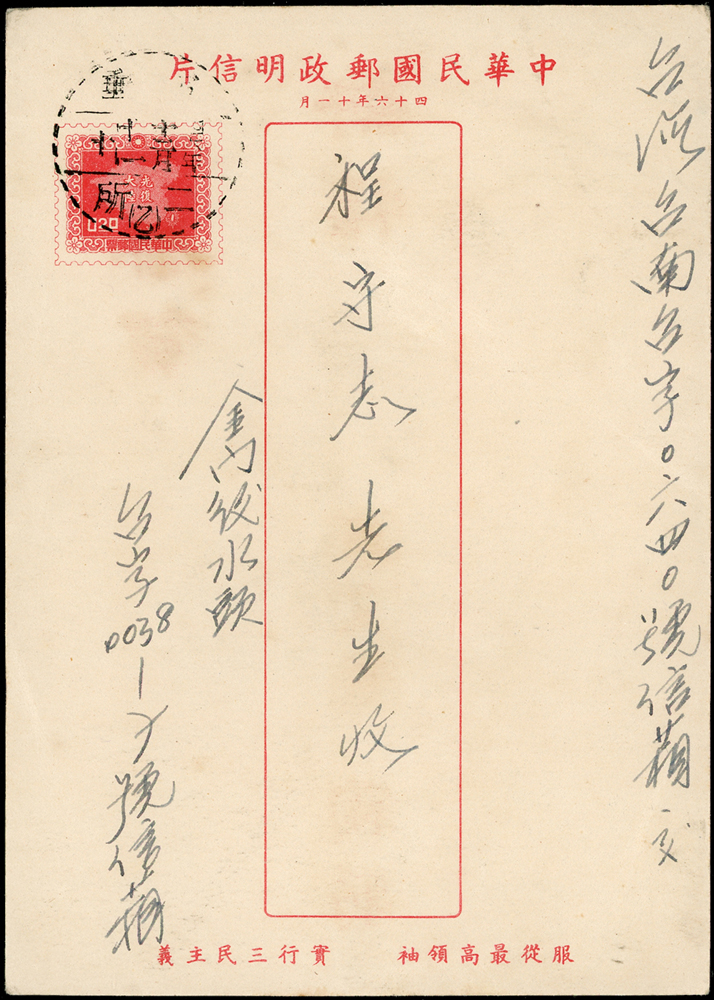 中華民國郵政明信片
四十六年十一月
光復大陸
0.20
中華民國郵票
所
(乙)
台灣台南台字〇六四〇號信箱 交
程守志先生收
金門後水頭
台字0038-2號信箱
服從最高領袖 實行三民主義